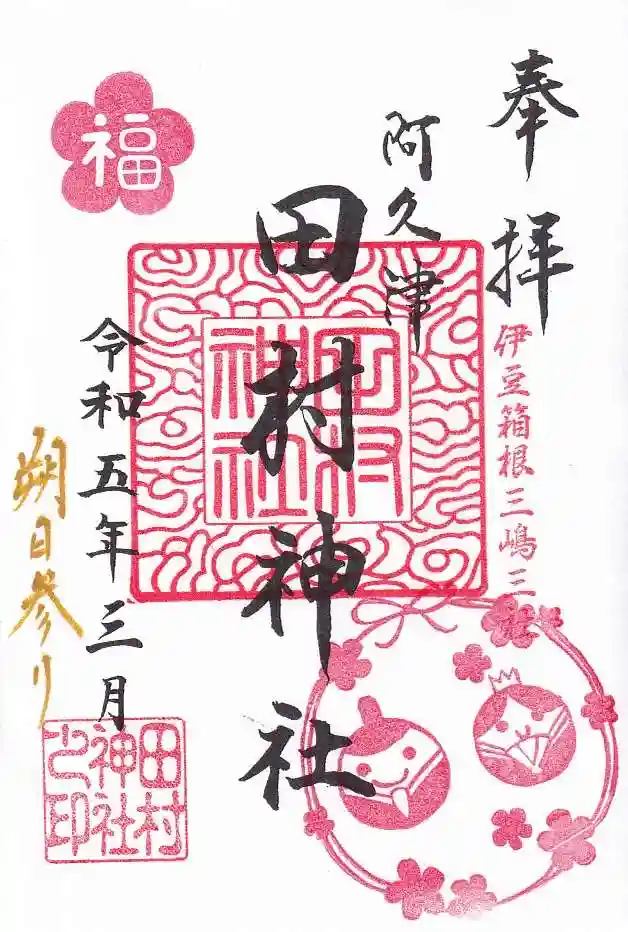 奉拝
伊豆箱根三嶋三
阿久津
田村神社
田村
神社
福
令和五年三月
朔日参り
田村
神社
之印